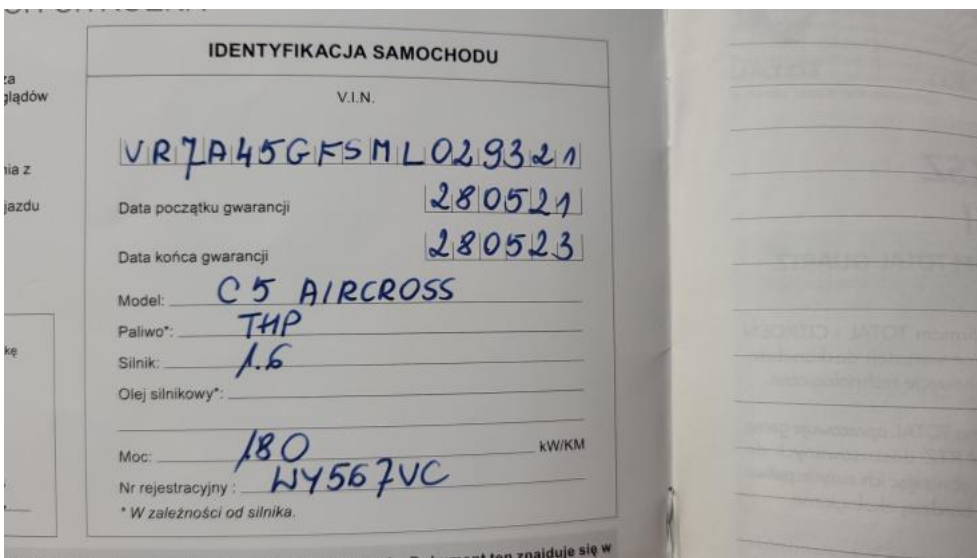 IDENTYFIKACJA SAMOCHODU
V.I.N.
VR7A45GFSML029321
Data początku gwarancji 280521
Data końca gwarancji 280523
Model: C5 AIRCROSS
Paliwo*: THP
Silnik: 1.6
Olej silnikowy*:
Moc: 180 kW/KM
Nr rejestracyjny : WY567VC
* W zależności od silnika.
za
glądów
nia z
jazdu
kę
Dokument ten znajduje się w